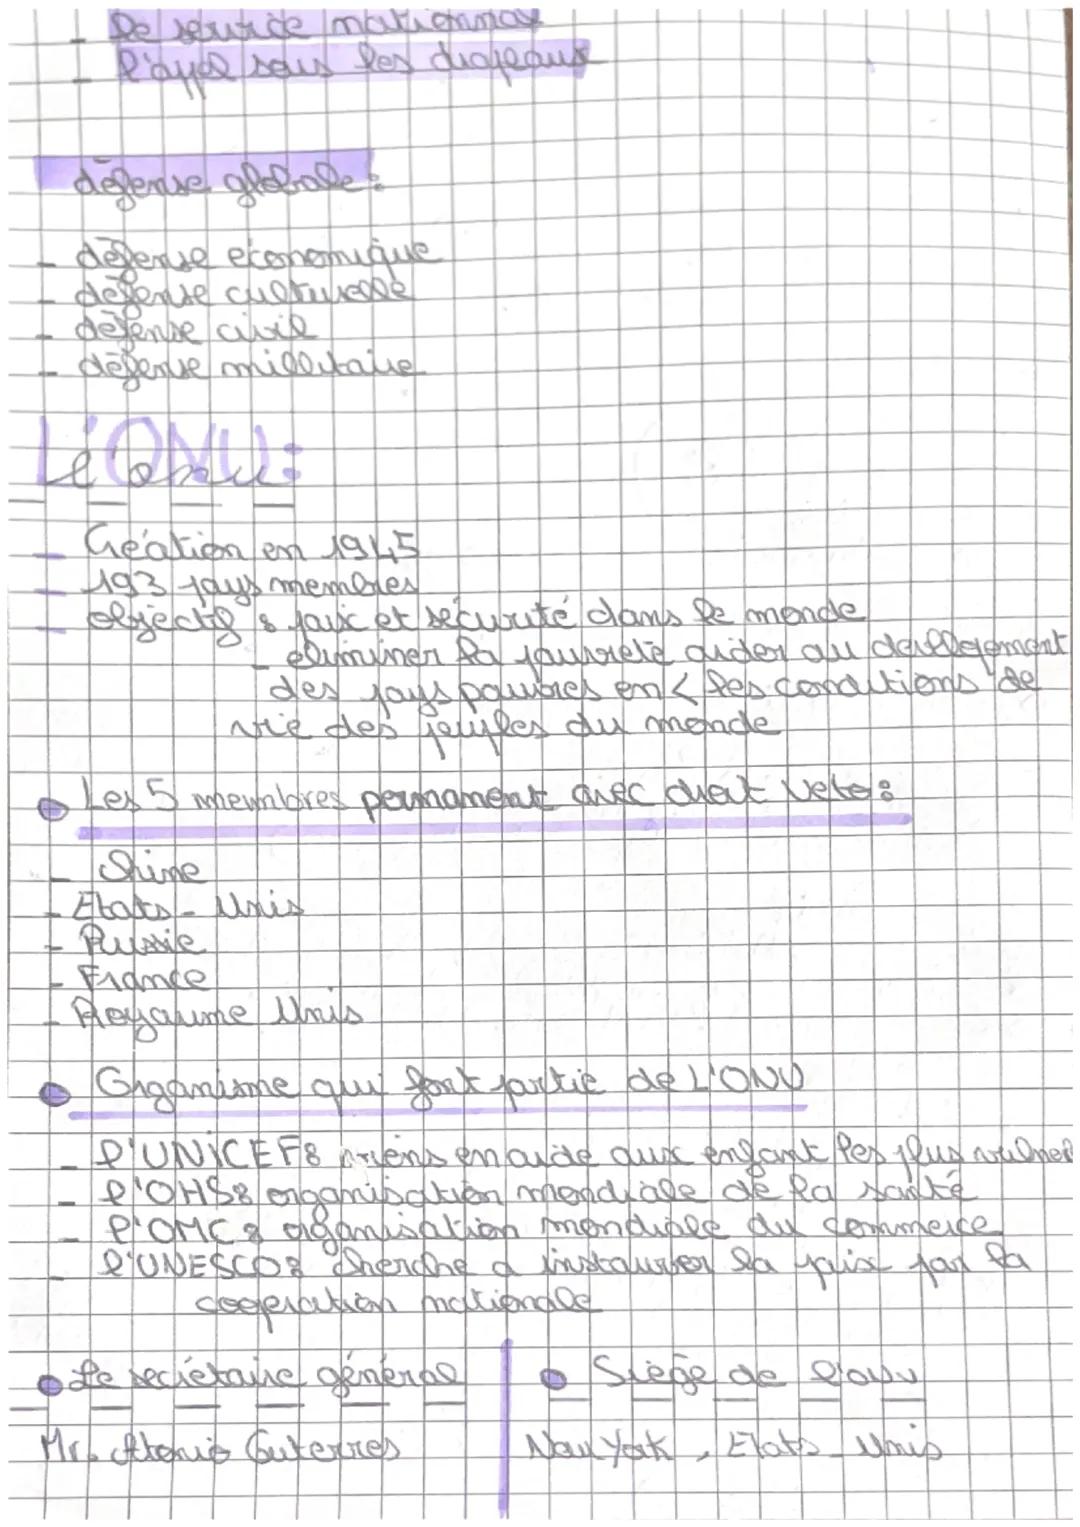 - le service nationnal
- l'appel sous les drapeaux
défense globale :
- défense économique
- défense culturelle
- défense civil
- défense millitaire
L'ONU:
l'onu
- Création en 1945
- 193 pays membres
- objectif : paix et sécurité dans le monde
- éliminer la pauvreté aider au devellopement
des pays pauvres en < les conditions de
vie des peuples du monde
Les 5 membres permament avec droit Veto :
- Chine
- Etats - Unis
- Russie
- France
- Royaume Unis
Organisme qui font partie de L'ONU
- l'UNICEF : viens en aide aux enfant les plus vulner
- l'OMS : organisation mondiale de la santé
- l'OMC : organisation mondiale du commerce
- l'UNESCO : cherche a instaurer la paix par la
cooperation nationale
Le secrétaire général
Siège de l'onu
Mr. Atonio Guterres
New York, Etats - Unis